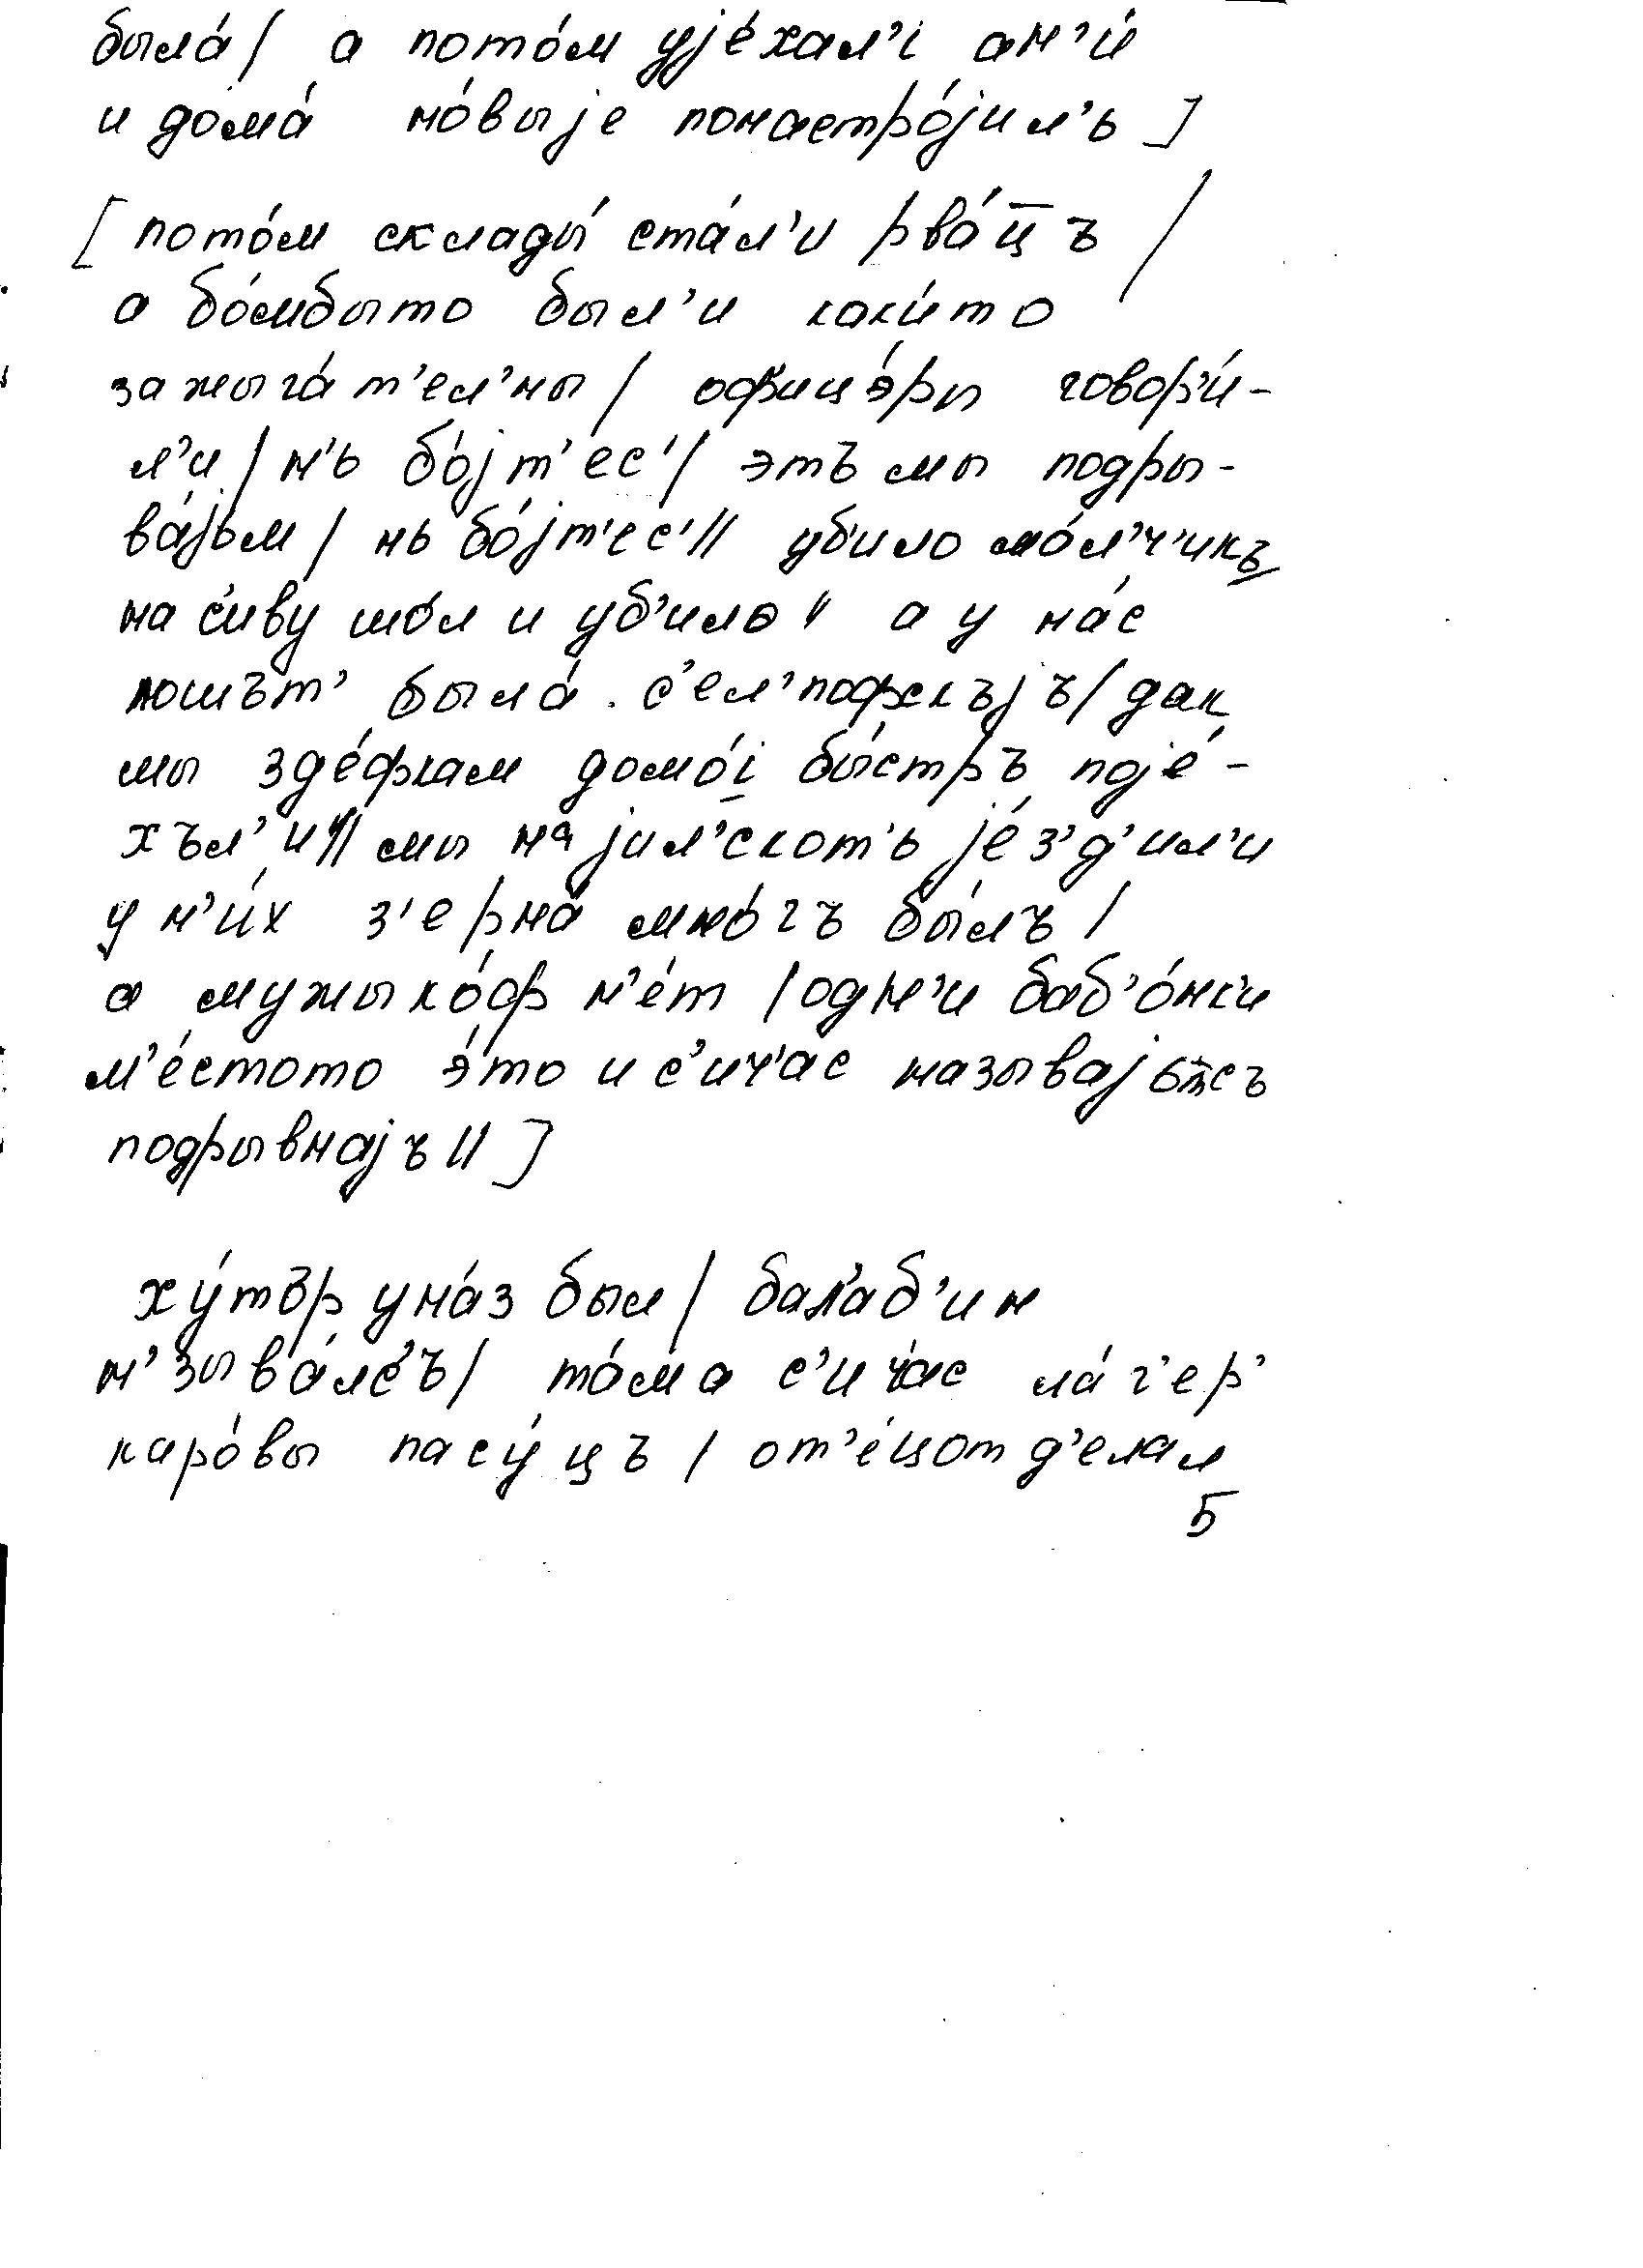 была́ / а пото́м ујéхал’і ан’и́
и дома́ но́выје понастро́јил’ь ]
[ пото́м склады́ ста́л’и рва́ц̅ъ /
а бо́мбыто был’и каки́то
зажыга́т’ел’ны / офицэ́ры говор’и́-
л’и / н’ь бо́јт’ес’ / этъ мы подры-
ва́јьм / нь бо́јт’ес’ // уб’ило ма́л’ч’икъ
на с’иву шо́л и уб’ило // а у на́с
лошът’ была́ с’ел’пофскъјъ / дак
мы зде́фкам домо́і бы́стръ поје́-
хъл’и // мы на јил’скот’ь је́з’д’ил’и
у н’и́х з’ерна́ мно́гъ бы́лъ /
а мужыко́ф н’е́т / одн’и баб’о́нк’и
м’е́стото э́то и с’ич’ас называјьт̅съ
подрывнајъ // ]
ху́тър уна́з был / бала́б’ин
н’зыва́лс’ъ / та́ма с’ич’ас ла́г’ер’
каро́вы пасу́цъ / от’е́цот д’елал
5